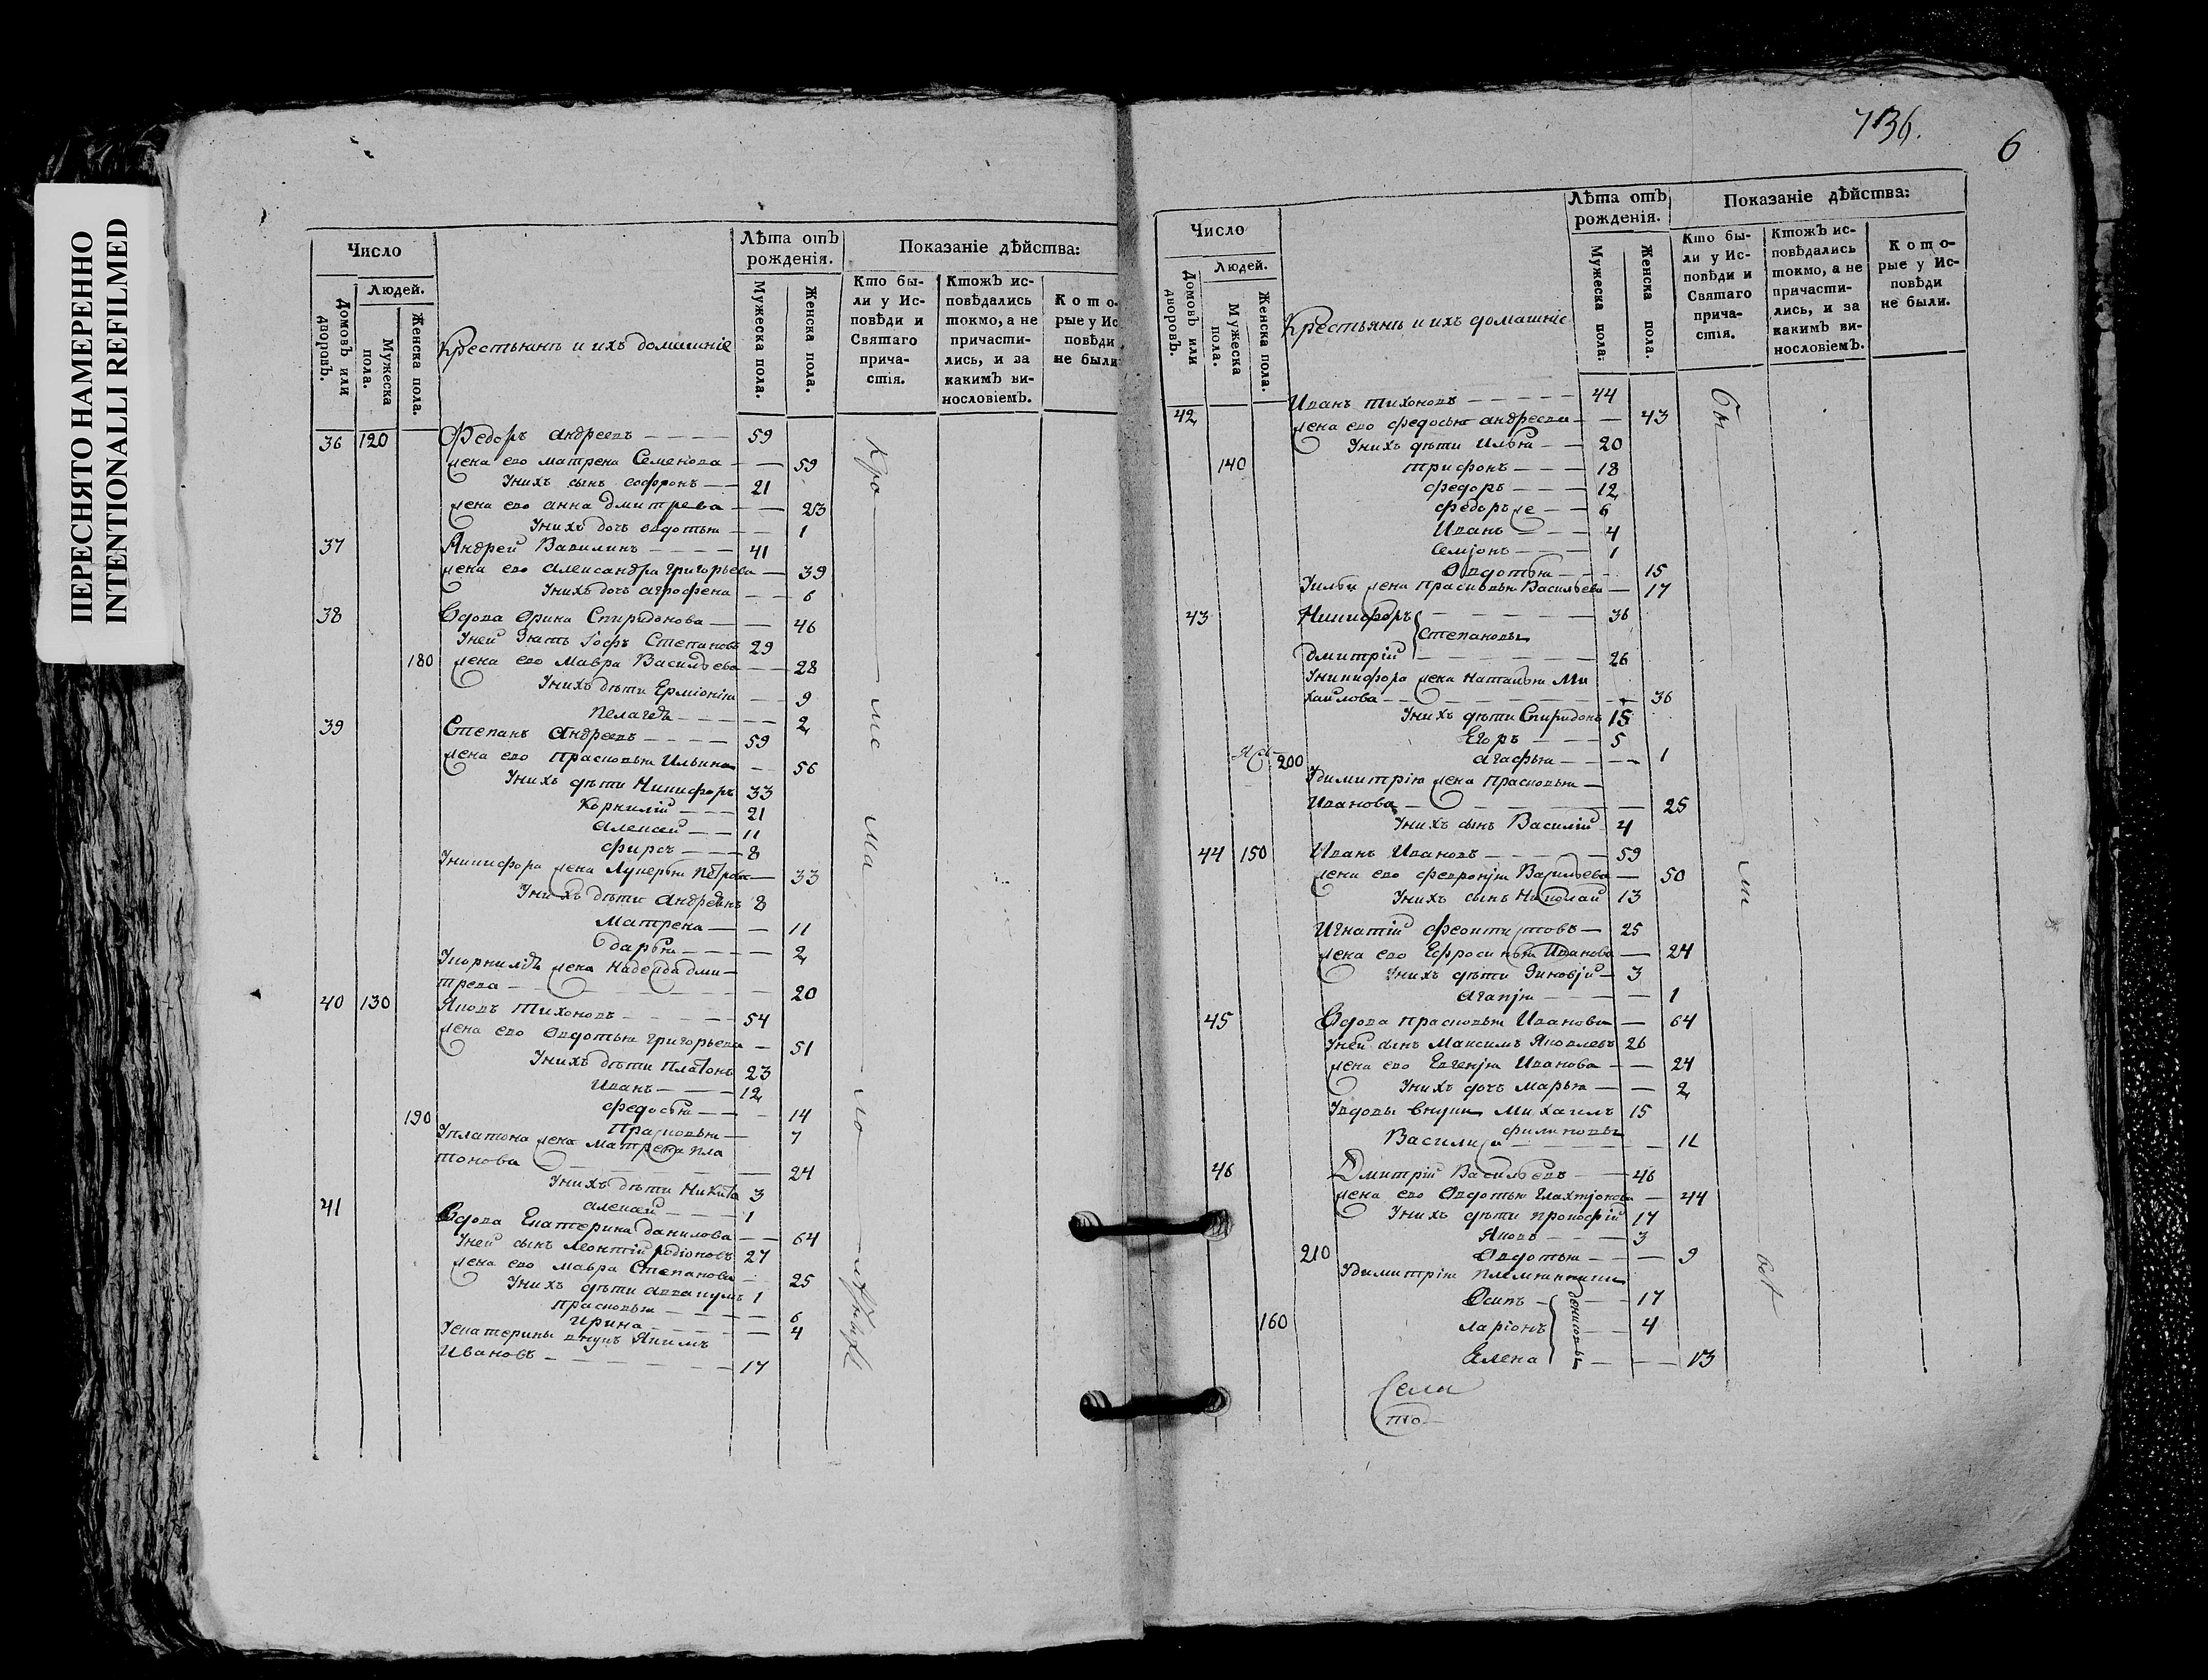 ПЕРЕСНЯТО НАМЕРЕННО
INTENTIONALLI REFILMED
Число
Людей.
Домовъ или дворовъ.
Мужеска пола.
Женска пола.
Крестьянѣ и ихъ домашніе
Лѣта отъ рожденія.
Мужеска пола.
Женска пола.
Показаніе дѣйства:
Кто бы-
ли у Ис-
повѣди и
Святаго
прича-
стія.
Ктожъ ис-
повѣдались
токмо, а не
причасти-
лись, и за
какимъ ви-
нословіемъ.
Кото-
рые у Ис
повѣди
не были
36 120 Федоръ андреевъ 59
жена ево матрена Семенова 59
У нихъ сынъ софронъ 21
жена ево анна дмитрева 23
У нихъ дочь овдотья 1
37 Андрей Вавилинъ 41
жена ево александра григорьева 39
У нихъ дочь агрофена 6
38 Вдова Орина Спиридонова 46
У ней зять Степановъ 29
180 жена ево мавра Васильева 28
У нихъ дѣти Ерміонія 9
пелагея 2
39 Степанъ андреевъ 59
жена ево прасковья Ильина 56
У нихъ дѣти Никифоръ 33
Корнилій 21
алексей 11
фирсъ 8
У никифора жена Лукерья петрова 33
У нихъ дѣти андреянъ 8
матрена 11
дарья 2
У корнилія жена надежда дми-
трева 20
40 130 Яковъ тихоновъ 54
жена ево овдотья григорьева 51
У нихъ дѣти платонъ 23
Иванъ 12
федосья 14
190 Прасковья 7
У платона жена матрена пла
тонова 24
У нихъ дѣти никита 3
алексей 1
41 Вдова Екатерина данилова 64
У ней сынъ леонтій радіоновъ 27
жена ево мавра Степанова 25
У нихъ дѣти аввакумъ 1
прасковья 6
ирина 4
У екатерины внукъ Якимъ
Ивановъ 17
736.
6
Число
Людей.
Домовъ или дворовъ.
Мужеска пола.
Женска пола.
Крестьянѣ и ихъ домашніе
Лѣта отъ рожденія.
Мужеска пола:
Женска пола.
Показаніе дѣйства:
Кто бы-
ли у Ис-
повѣди и
Святаго
прича-
стія.
Ктожъ ис-
повѣдались
токмо, а не
причасти-
лись, и за
какимъ ви-
нословіемъ.
Кото-
рые у Ис-
повѣди
не были.
42 Иванъ тихоновъ 44
жена ево федосья андреева 43
У нихъ дѣти Илья 20
140 трифонъ 18
федоръ 12
федоръ же 6
Иванъ 4
семіонъ 1
Овдотья 15
У ильи жена прасковья Васильева 17
43 Никифоръ 36
Степановы
Дмитрій 26
У никифора жена наталья Ми
хайлова 36
У нихъ дѣти Спиридонъ 15
Егоръ 5
200 агафья 1
У димитрія жена прасковья
Иванова 25
У нихъ сынъ Василій 4
44 150 Иванъ Ивановъ 59
жена ево февронія Васильева 50
У нихъ сынъ Николай 13
Игнатій 25
жена ево Ефросинья Иванова 24
У нихъ дѣти Зиновій 3
агапія 1
45 Вдова прасковья Иванова 64
У ней сынъ Максимъ Яковлевъ 26
жена ево Евгенія Иванова 24
У нихъ дочь марья 2
У вдовы внуки Михаилъ 15
филиповы
Василиса 11
46 Дмитрій Васильевъ 46
жена ево Овдотья 44
У нихъ дѣти прокофій 17
Яковъ 3
210 Овдотья 9
У димитрія племянники
Осипъ 17
денисовы
160 ларіонъ 4
Алена 13
Села